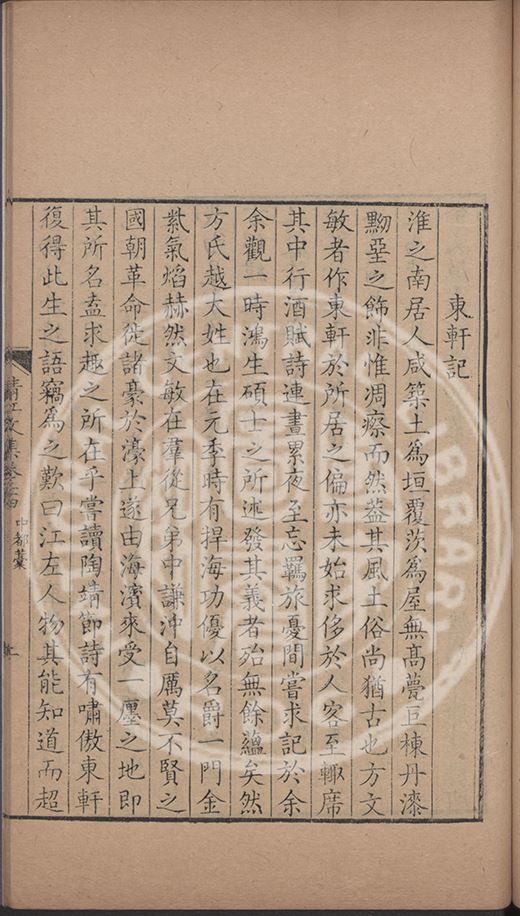 東軒記
淮之南居人咸築土爲垣覆茨爲屋無髙甍巨棟丹漆
黝堊之飾非惟凋瘵而然葢其風土俗尚猶古也方文
敏者作東軒於所居之偏亦未始求侈於人客至輙席
其中行酒賦詩連晝累夜至忘羈旅憂間嘗求記於余
余觀一時鴻生碩士之所述發其義者殆無餘蘊矣然
方氏越大姓也在元季時有捍海功優以名爵一門金
紫氣焰赫然文敏在羣從兄弟中謙沖自厲莫不賢之
國朝革命徙諸豪於濠上遂由海濱來受一廛之地即
其所名盍求趣之所在乎嘗讀陶靖節詩有嘯傲東軒
復得此生之語竊爲之歎曰江左人物其能知道而超
清江文集卷 中都藁